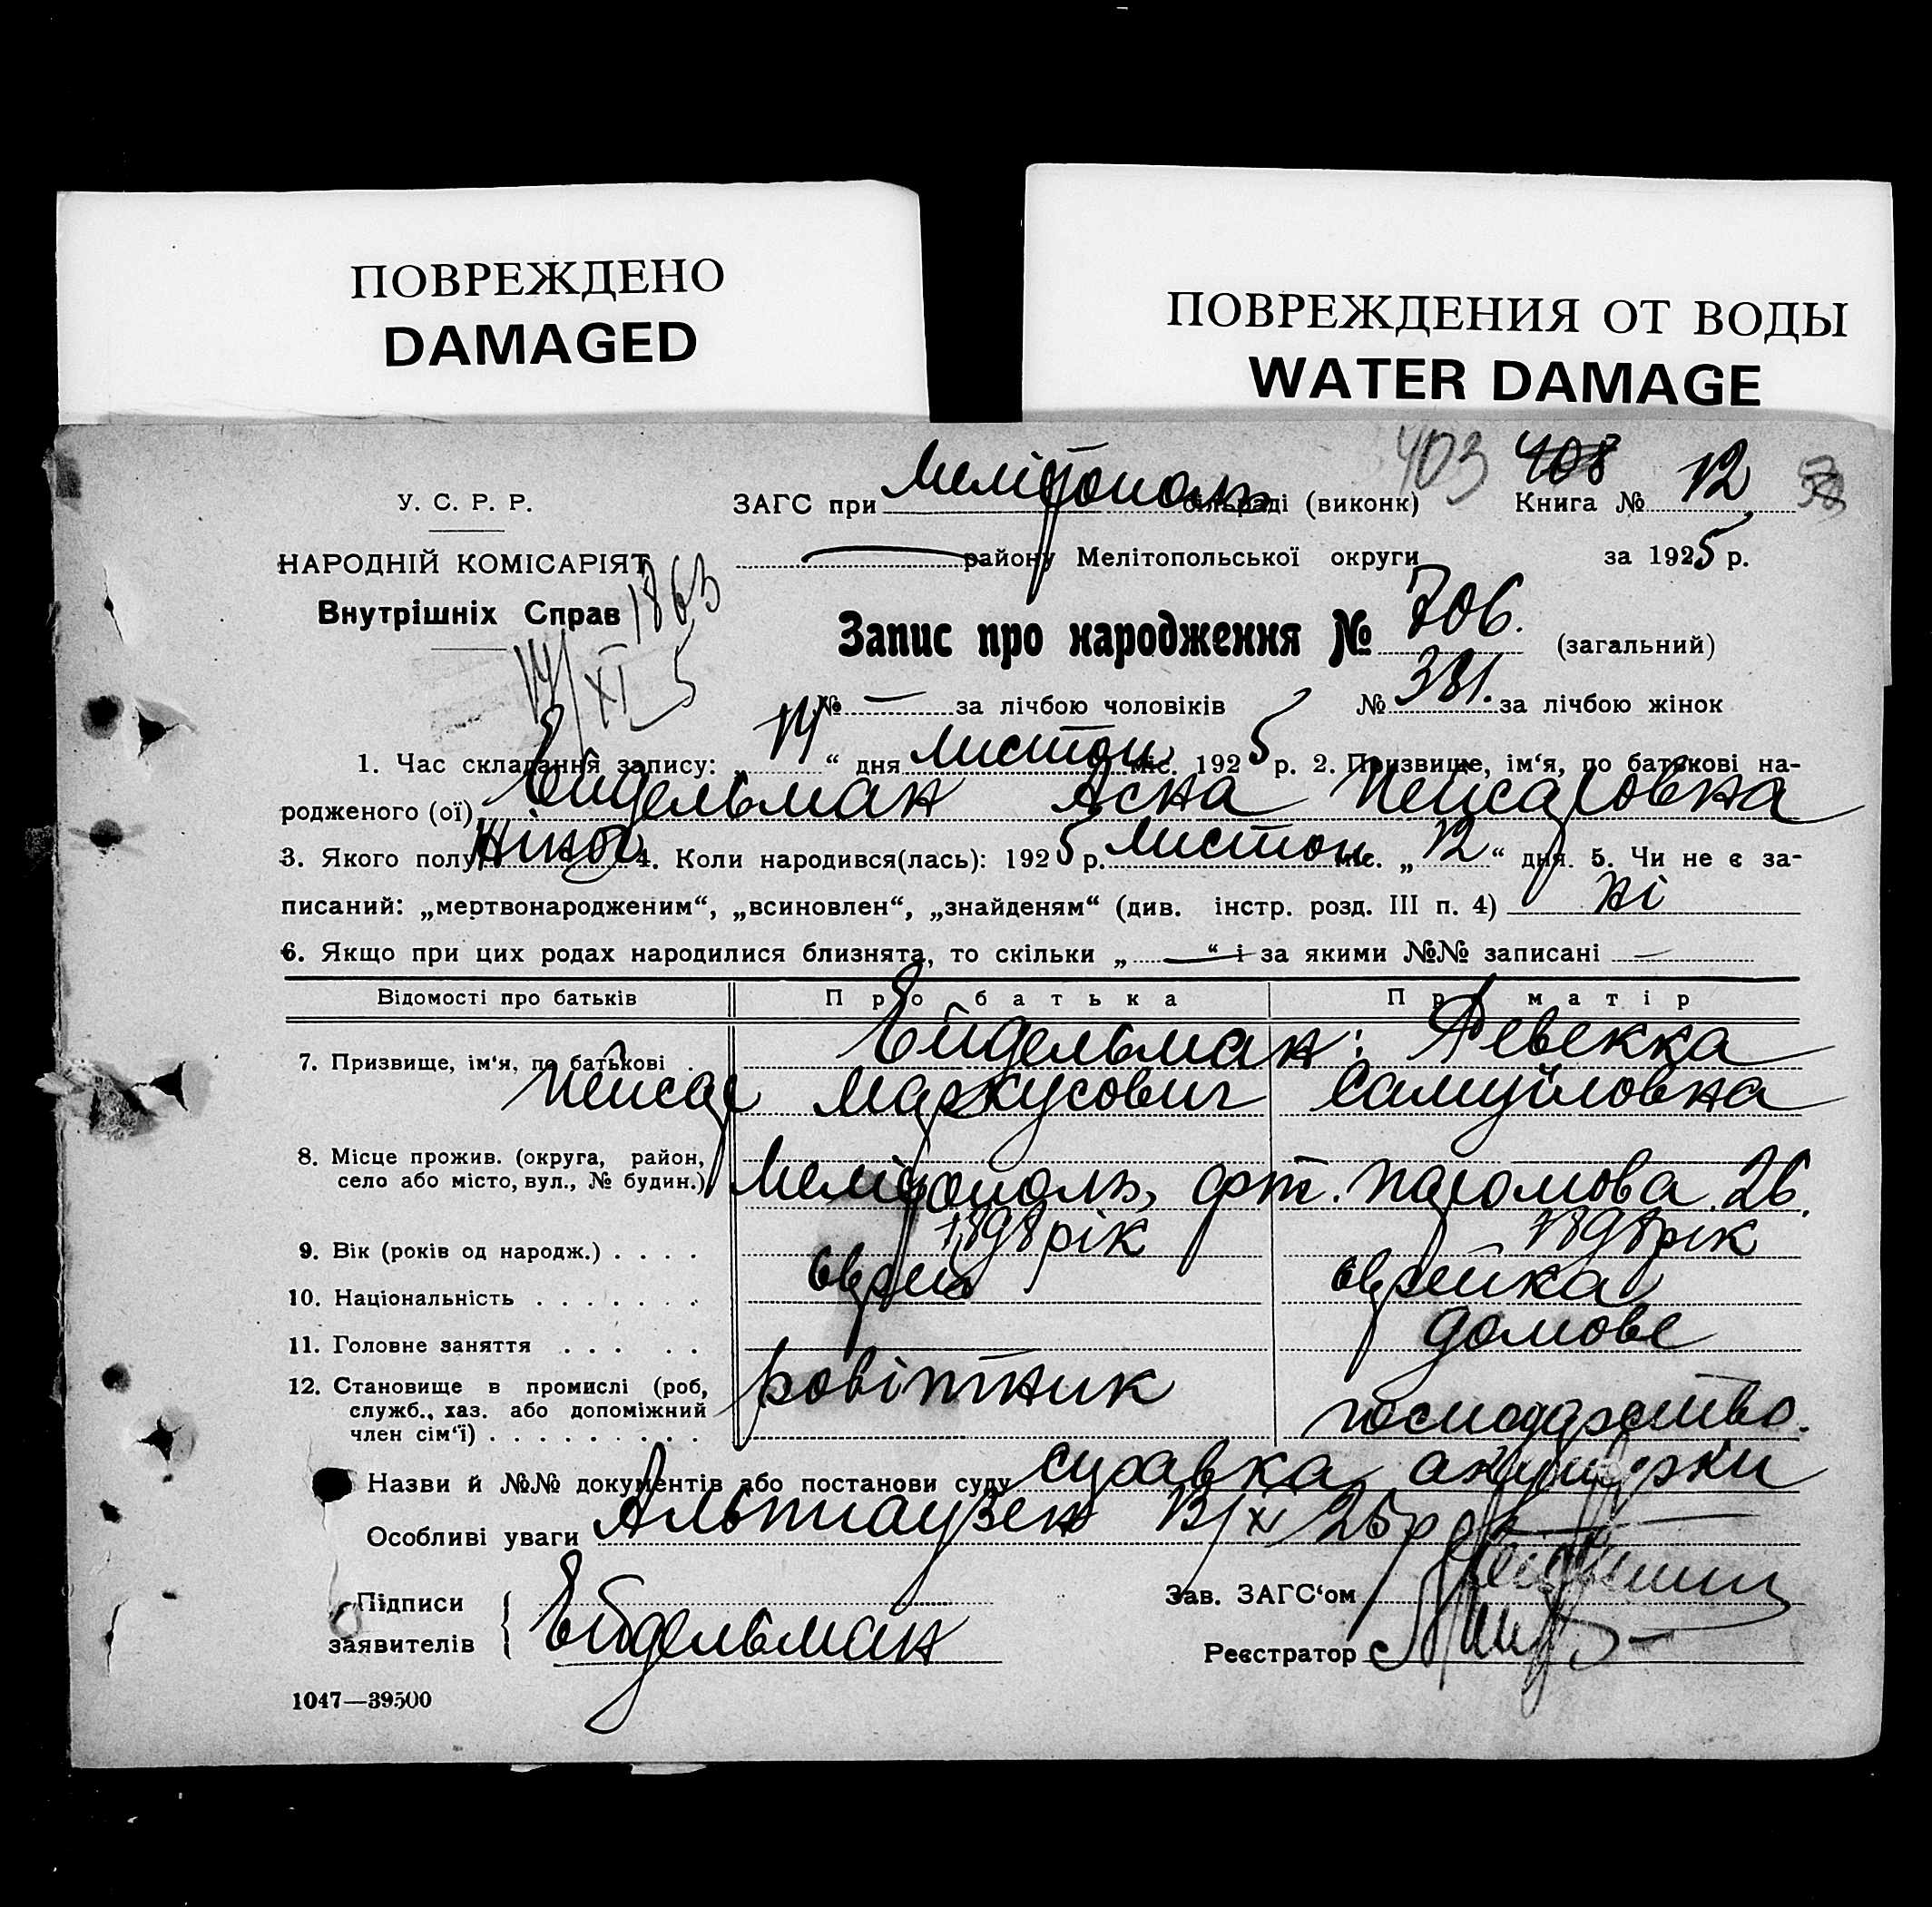 ПОВРЕЖДЕНО
DAMAGED
ПОВРЕЖДЕНИЯ ОТ ВОДЫ
WATER DAMAGE
403 408
У. С. Р. Р.
ЗАГС при Мелітополь сільраді (виконк) Книга № 12
НАРОДНІЙ КОМІСАРІЯТ
району Мелітопольської округи за 1925 р.
Внутрішніх Справ
1863
Запис про народження № 706. (загальний)
14/XI 5
№ — за лічбою чоловіків № 381. за лічбою жінок
1. Час складання запису: „14“ дня листоп міс. 1925 р. 2. Призвище, ім‘я, по батькові на-
родженого (ої) Ейдельман Асна Пейсаровна
3. Якого полу жіноч 4. Коли народився(лась): 1925 р. листоп міс. „12“ дня. 5. Чи не є за-
писаний: „мертвонародженим“, „всиновлен“, „знайденям“ (див. інстр. розд. III п. 4) ні
6. Якщо при цих родах народилися близнята, то скільки „—“ і за якими №№ записані —
Відомості про батьків Про батька Про матір
7. Призвище, ім‘я, по батькові . Ейдельман: Ревекка
Пейсар Маркусович Самуйловна
8. Місце прожив. (округа, район,
село або місто, вул., № будин.) Мелітополь, Паромова 26.
9. Вік (років од народж.) . . . . 1898 рік 1898 рік
10. Національність . . . . . . . єврей єврейка
11. Головне заняття . . . . . домове
12. Становище в промислі (роб,
служб., хаз. або допоміжний
член сім‘ї) . . . . . . . . . робітник господарство.
Назви й №№ документів або постанови суду справка акушорки
Особливі уваги Альтгаузен 13/XI 25 р
Підписи
заявителів
Ейдельман
Зав. ЗАГС‘ом
Реєстратор
1047—39500